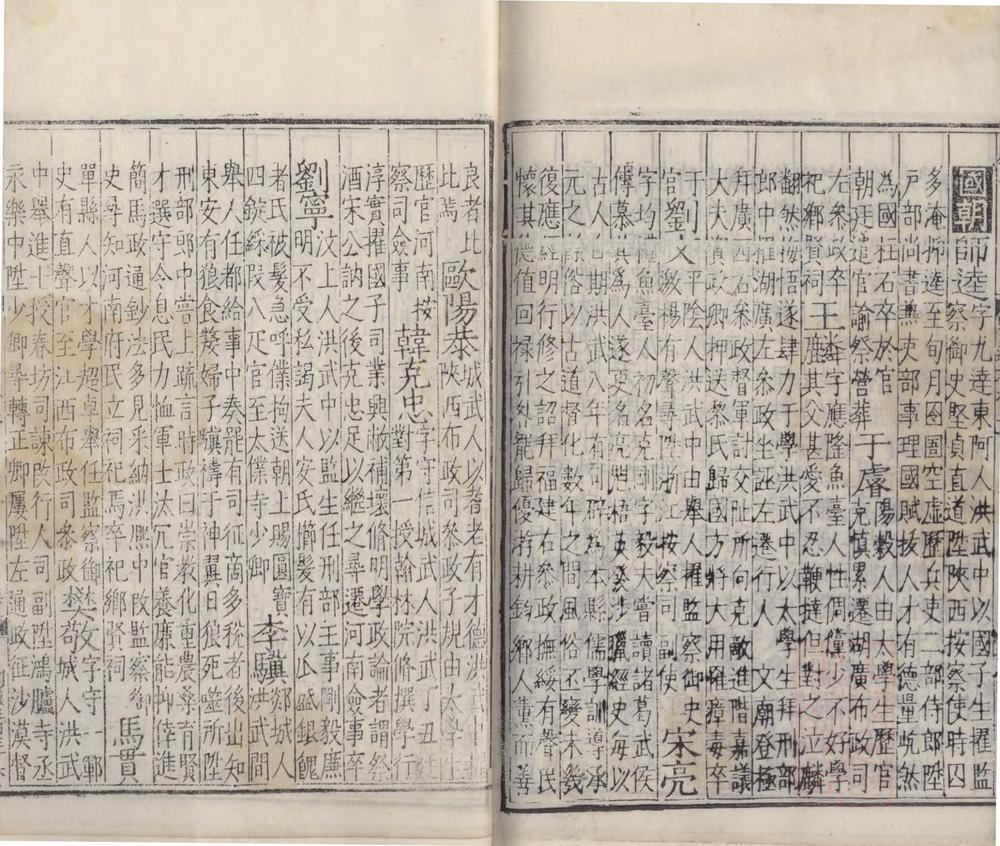 國朝師逵字九達東阿人洪武中以國子生擢監
察御史堅貞直道陞陝西按察使時囚
多淹抑逵至旬月囹圄空虛歷兵吏二部侍郎陞
戶部尚書兼吏部事理國賦拔人才有德量屹然
為國柱石卒於官
朝廷遣官諭祭營葬 于𪩘陽穀人由太學生歷官
左叅兄慎累遷湖廣布政司
祀鄉賢祠 王麟字應隆魚臺人性倜儻少不好學
其父甚愛不忍鞭撻但對之泣麟
翻然悔悟遂肆力于學洪武中以太學生拜刑部
郎中擢湖廣左叅政坐誣左遷行人 文廟登極
拜廣西右叅政督軍討交阯所向克敵進階嘉議
大夫資政卿押送黎氏歸國方將大用罹瘴毒卒
官劉文平陰人洪武中由舉人擢監察御史
激揚有聲尋陞浙江按察司副使 宋亮
字均魚臺人初名克剛字毅夫嘗讀諸葛武侯
傳慕其為人遂更名亮思梧吏獵經史每以
古人自期洪武八年有司辟為本縣儒學訓導承
元之俗以古道督化數年之間風俗丕變未幾
復應經明行修之詔拜福建右叅政撫綏有聲民
懷其德值回祿引咎罷歸優游耕釣鄉人薰而善
良者比城武人以耆老有才德洪武
比焉 歐陽泰陝西布政司叅政子規由太學
歷官河南按韓克忠字守信城武人洪武丁丑
察司僉事對第一授翰林院修撰學行
淳實擢國子司業興敝補壞修明學政論者謂祭
酒宋公訥之後克忠足以繼之尋遷河南僉事卒
劉寧汶上人洪武中以監生任刑部主事剛毅廉
明不受私謁夫人安氏櫛髮有以瓜盛銀餽
者氏被髮急呼僕拘送朝上賜圓寶郯城人
四錠綵叚八疋官至太僕寺少卿 李驥洪武間
舉人任都給事中奏罷有司征商多稅者後出知
東安有狼食𡠹婦子驥禱于神翼日狼死噬所陞
刑部郎中嘗上疏言時政曰崇教化重農桑育賢
才選守令息民力恤軍士汰冗官養廉能神倖進
簡馬政通鈔法多見采納洪熙中改監察御
史尋知河南府民立祠祀焉卒祀鄉賢祠 馬貫
單縣人以才學超卓舉任監察御樊文字守一鄆
史有直聲官至江西布政司叅政樊敬城人洪武
中舉進士授春坊司諫改行人司副陞鴻臚寺丞
永樂中陞少卿尋轉正卿厲陞左通政征沙漠督